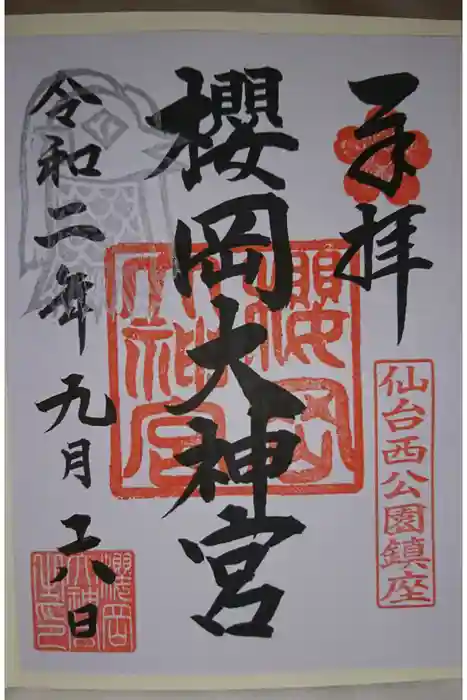 奉拝
仙台西公園鎮座
櫻岡大神宮
櫻岡大神宮
令和二年九月十六日
櫻岡
大神宮
之印